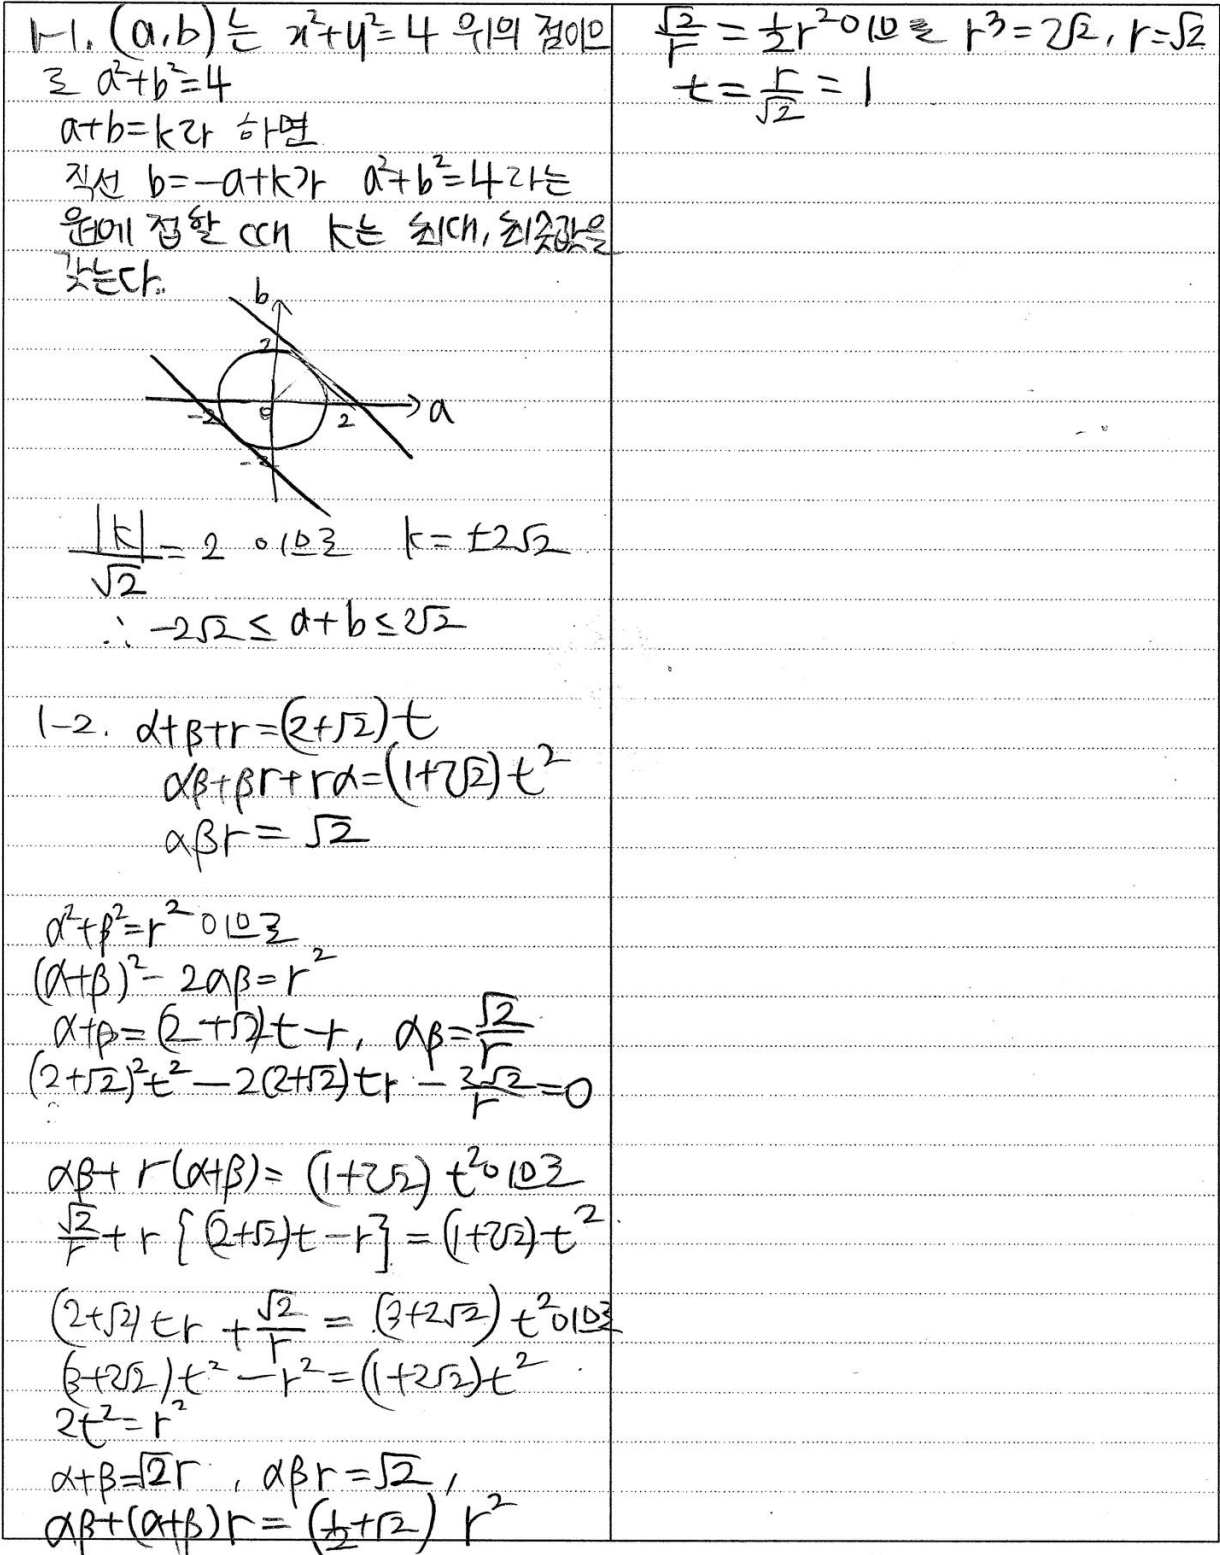 1-1. (a,b)는 x²+y²=4 위의 점이므
로 a²+b²=4
a+b=k라 하면
직선 b=-a+k가 a²+b²=4라는
원에 접할 때 k는 최대, 최솟값을
갖는다.
b
2
-2 0 2 a
-2
|k|/√2 = 2 이므로 k=±2√2
∴ -2√2 ≤ a+b ≤ 2√2
1-2. α+β+r=(2+√2)t
αβ+βr+rα=(1+2√2)t²
αβr=√2
α²+β²=r² 이므로
(α+β)²-2αβ=r²
α+β=(2+√2)t-r, αβ=√2/r
(2+√2)²t²-2(2+√2)tr-2√2/r=0
αβ+r(α+β)=(1+2√2)t²이므로
√2/r+r{(2+√2)t-r}=(1+2√2)t²
(2+√2)tr+√2/r=(3+2√2)t²이므로
(3+2√2)t²-r²=(1+2√2)t²
2t²=r²
α+β=√2r, αβr=√2,
αβ+(α+β)r=(1/2+√2)r²
√2/r=1/2r²이므로 r³=2√2, r=√2
t=r/√2=1